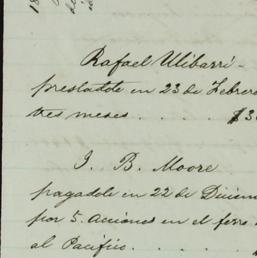 Rafael Ulibarrí -
prestadole en 23 de Febrero
tres meses . . . . $3
J. B. Moore
pagadole en 22 de Diciem
por 5. acciones en el ferro
al Pacífico. . . . .